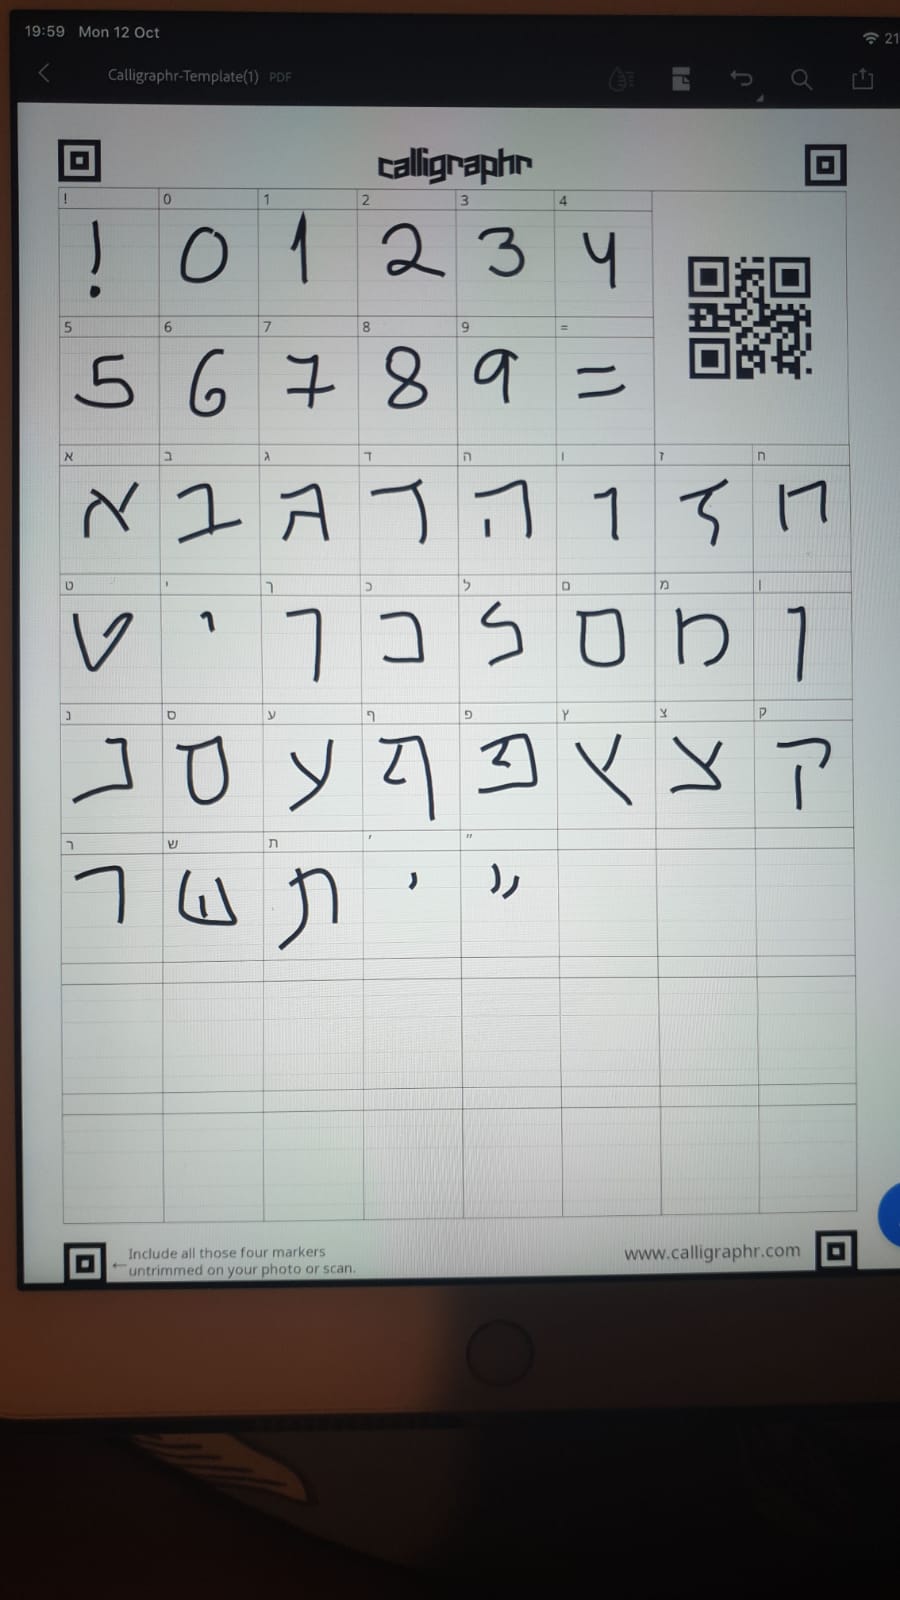 19:59 Mon 12 Oct
21
Calligraphr-Template(1) PDF
calligraphr
! 0 1 2 3 4
! 0 1 2 3 4
5 6 7 8 9 =
5 6 7 8 9 =
א ב ג ד ה ו ז ח
א ב ג ד ה ו ז ח
ט י ך כ ל ם מ ן
ט י ך כ ל ם מ ן
נ ס ע ף פ ץ צ ק
נ ס ע ף פ ץ צ ק
ר ש ת ׳ ״
ר ש ת ׳ ״
Include all those four markers
←untrimmed on your photo or scan.
www.calligraphr.com